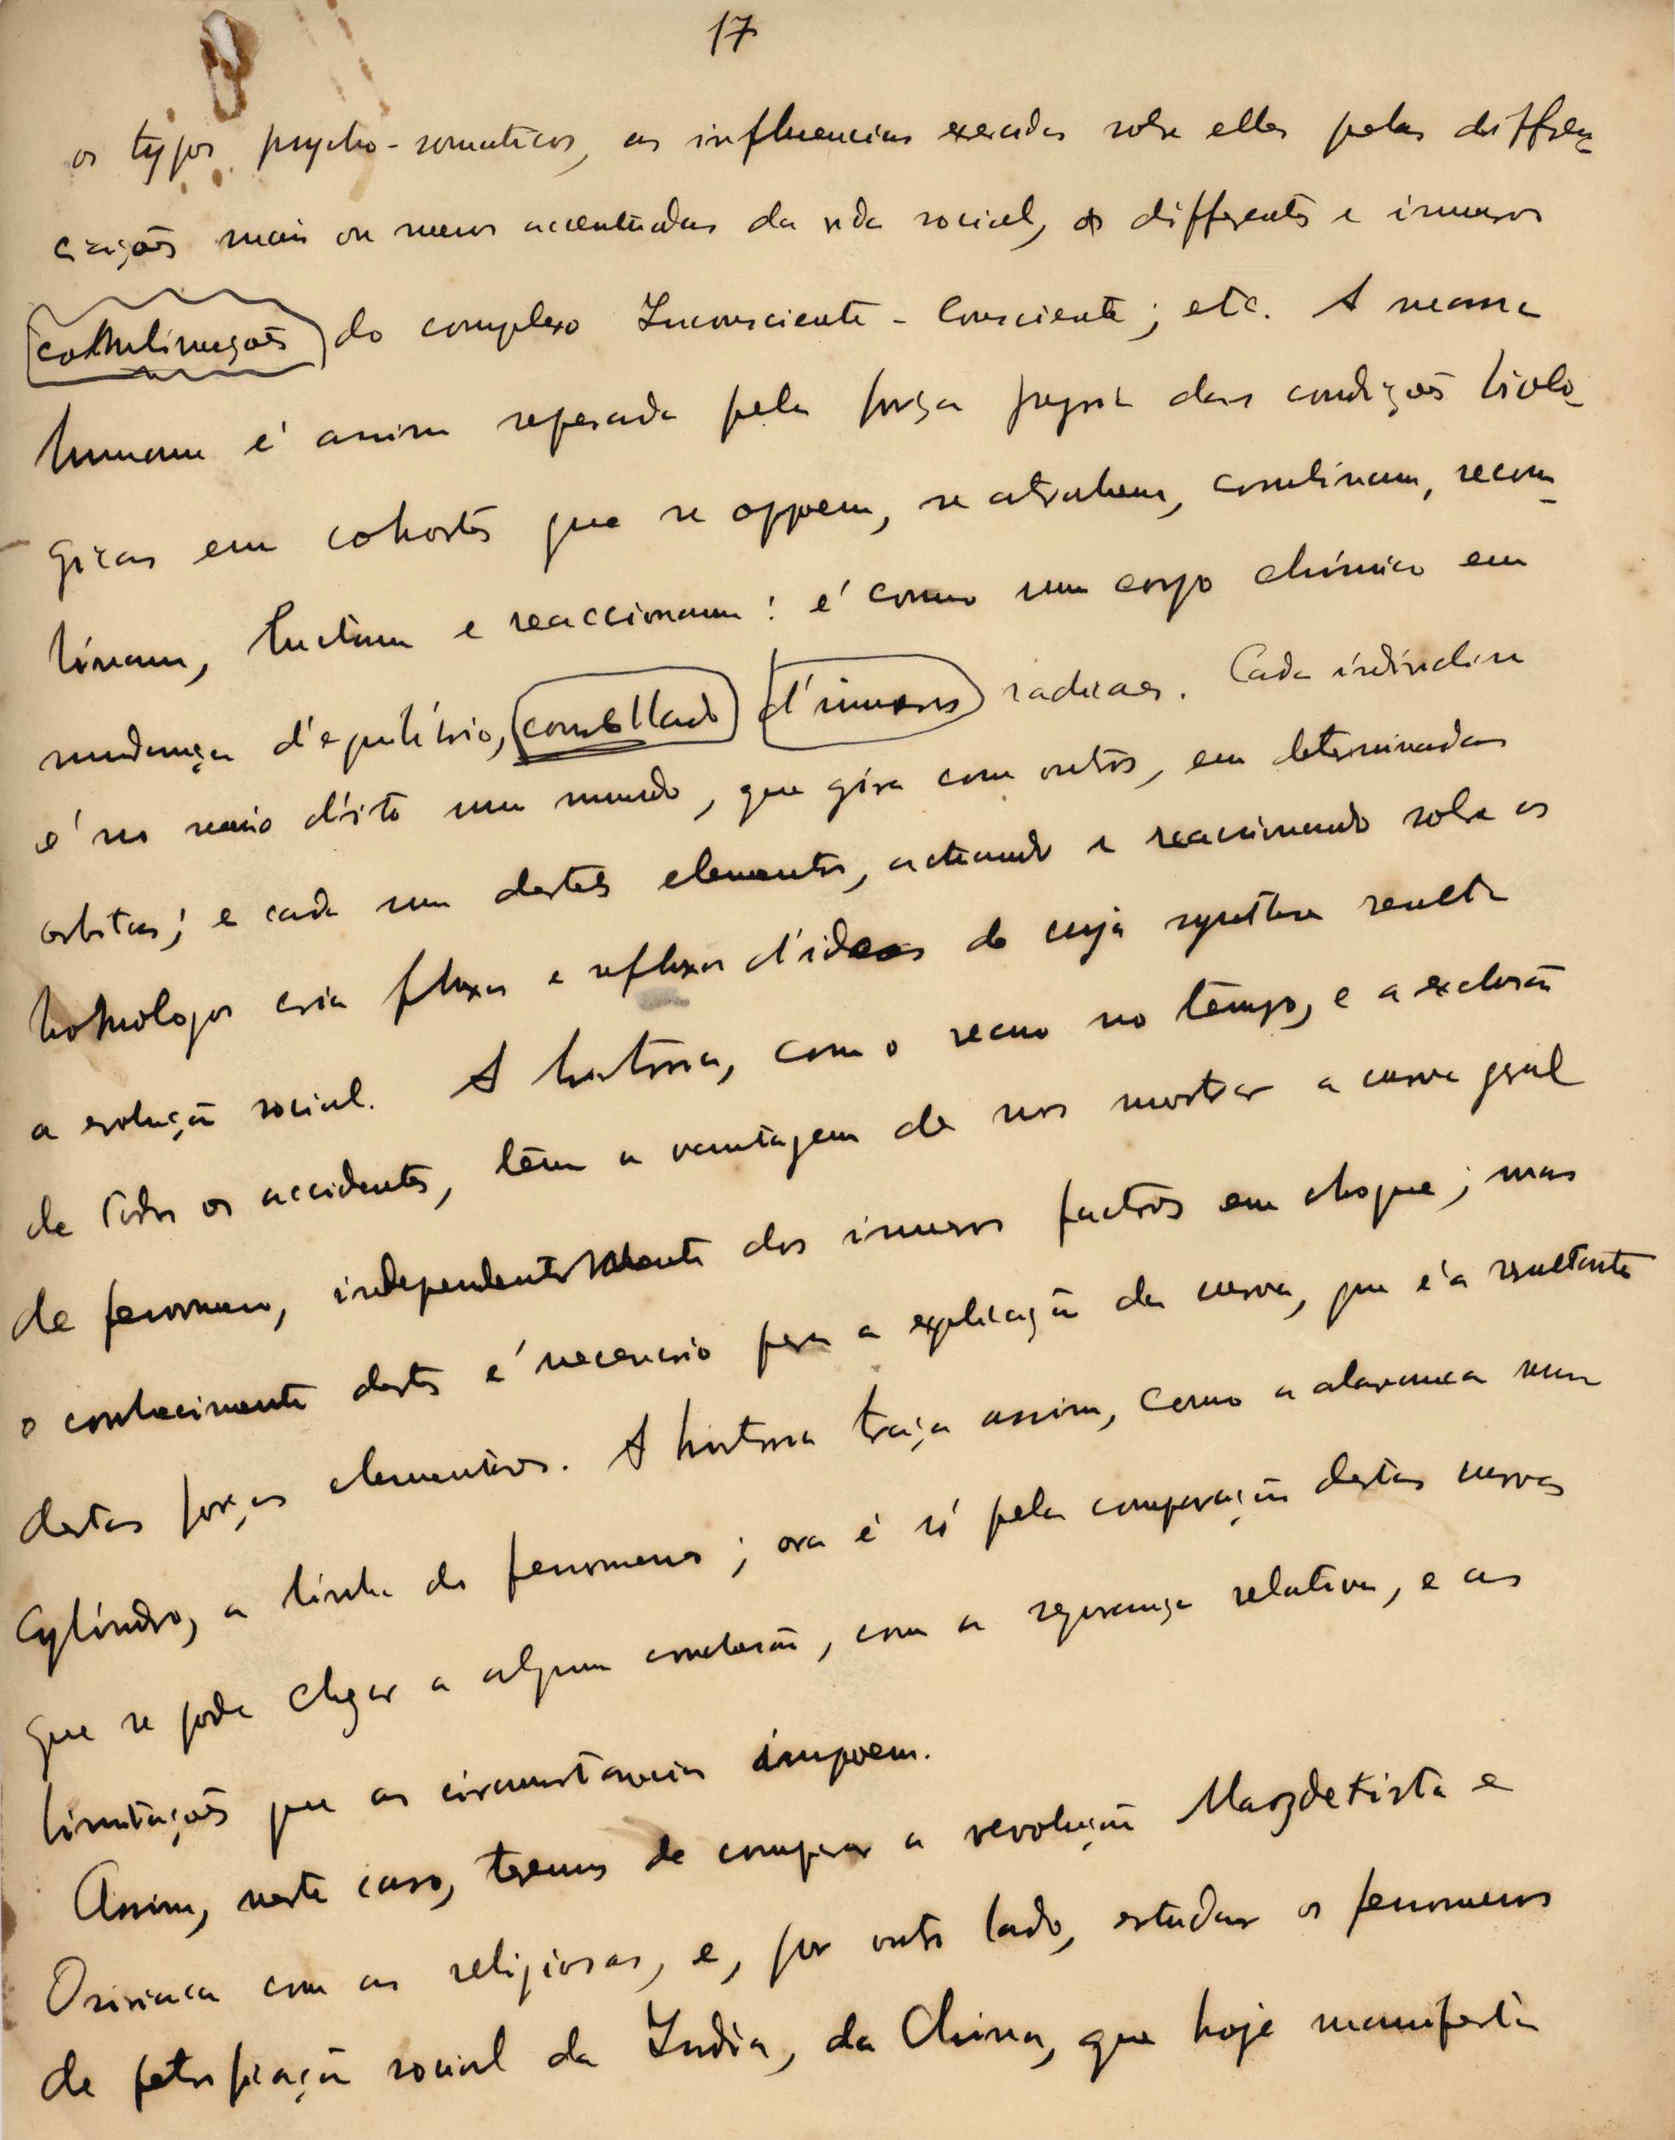 17
os typos psycho-somaticos, as influencias exercidas sobre elles pelas differen_
ciações mais ou menos accentuadas da vida social, as differentes e innumeros
combinações do complexo Inconsciente - Consciente; etc. A massa
humana é assim separada pela força propria das condições biolo_
gicas em cohortes que se oppoem, se attrahem, combinam, recom_
binam, luctam e reaccionam: é como um corpo chimico em
mudança d'equilibrio, d'innumeros radicaes. Cada individuo
é no meio d'isto um mundo, que gira com outros, em determinadas
orbitas; e cada um destes elementos, actuando e reaccionando sobre os
homologos cria fluxos e refluxos d'ideas de cuja synthese resulta
a evolução social. A historia, com o recuo no tempo, e a exclusão
de todos os accidentes, tem a vantagem de nos mostrar a curva geral
de fenomeno, independentemente dos innumeros factores em choque; mas
o conhecimento destes é necessario para a explicação da curva, que é a resultante
destas forças elementares. A historia traça assim, como a alavanca num
cylindro, a linha do fenomeno; ora é só pela comparação destas curvas
que se pode chegar a alguma conclusão, com a segurança relativa, e as
limitações que as circumstancias impoem.
Assim, neste caso, teremos de comparar a revolução Mazdeista e
Osiriaca com as religiosas, e, por outro lado, estudar os fenomenos
de petrificação social da India, da China, que hoje manifesta